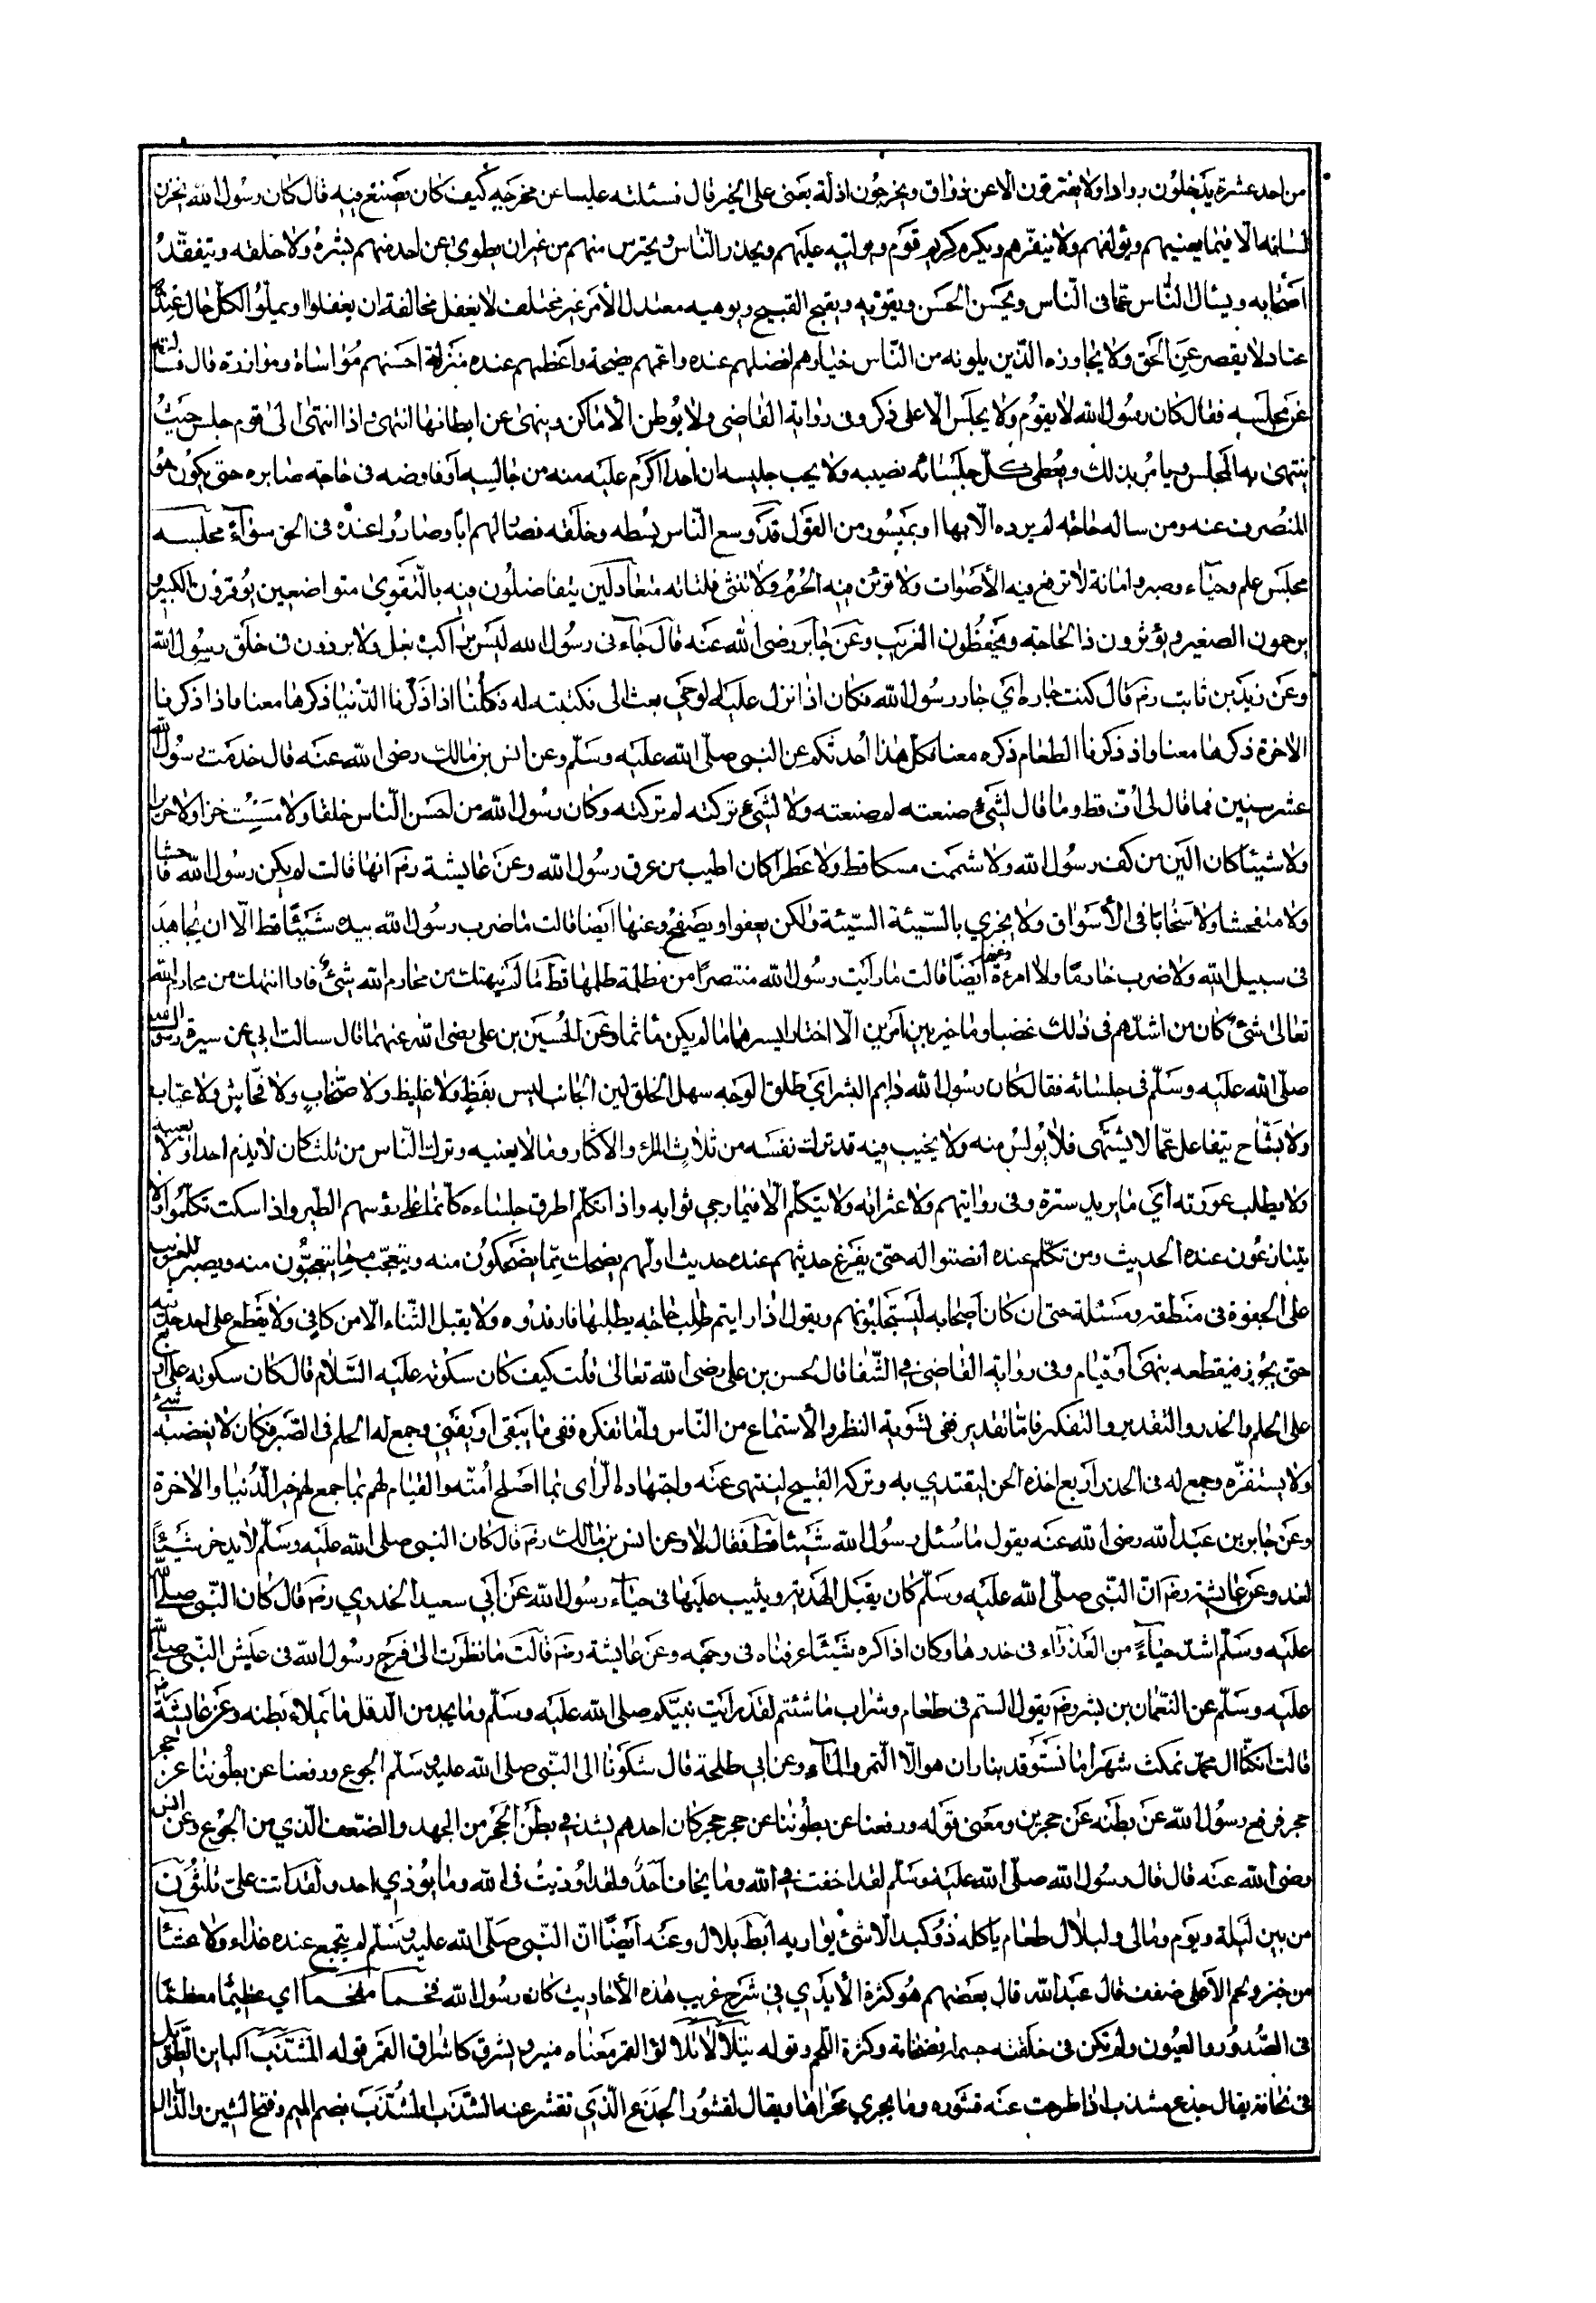 من احد عشرة يدخلون روادا ولا يفترقون الا عن ذواق ويخرجون اذلة يعنى على الخير قال فسئلته عليسا عن مخرجه كيف كان يصنع فيه قال كان رسول الله يخزن
لسانه الا فيما يعنيهم ويؤلفهم ولا ينفرهم ويكره كريم قوم ويوليه عليهم ويحذر الناس ويحترس منهم من غير ان يطوى عن احد منهم بشره ولا خلقه ويتفقد
اصحابه ويسأل الناس عما فى الناس ويحسن الحسن ويقويه ويقبح القبيح ويوهيه معتدل الأمر غير مختلف لا يغفل مخالفة ان يغفلوا او يملوا لكل حال عنده
عتاد لا يقصر عن الحق ولا يجاوزه الذين يلونه من الناس خيارهم افضلهم عنده واعمهم نصيحة واعظمهم عنده منزلة احسنهم مؤاساة وموازرة قال فسألته
عن مجلسه فقال كان رسول الله لا يقوم ولا يجلس الا على ذكر وفى رواية القاضى ولا يوطن الأماكن وينهى عن ايطانها انتهى واذا انتهى الى قوم جلس حيث
ينتهى به المجلس ويامر بذلك ويعطى كل جلسائه نصيبه ولا يحب جليسه ان احدا اكرم عليه منه من جالسه او فاوضه فى حاجة صابره حتى يكون هو
المنصرف عنه ومن ساله حاجة لم يرده الا بها او بميسور من القول قد وسع الناس بسطه وخلقه فصار لهم ابا وصاروا عنده فى الحق سواء مجلسه
مجلس علم وحياء وصبر وامانة لا ترفع فيه الأصوات ولا تؤبن فيه الحرم ولا تنثى فلتاته متعادلين يتفاضلون فيه بالتقوى متواضعين يوقرون الكبير
يرحمون الصغير ويؤثرون ذا الحاجة ويحفظون الغريب وعن جابر رضى الله عنه قال جاءنى رسول الله ليس براكب بغل ولا برذون فى خلق رسول الله
وعن زيد بن ثابت رضم قال كنت جاره اي جار رسول الله فكان اذا نزل عليه الوحي بعث الى فكتبته له فكنا اذا ذكرنا الدنيا ذكرها معنا واذا ذكرنا
الاخرة ذكرها معنا واذ ذكرنا الطعام ذكره معنا فكل هذا أحدثكم عن النبى صلى الله عليه وسلم وعن انس بن مالك رضى الله عنه قال خدمت رسول الله
عشر سنين فما قال لى أف قط وما قال لشىء صنعته لم صنعته ولا لشىء تركته لم تركته وكان رسول الله من احسن الناس خلقا ولا مسست خزا ولا حريرا
ولا شيئا كان الين من كف رسول الله ولا شممت مسكا قط ولا عطرا كان اطيب من عرق رسول الله وعن عايشة رضم انها قالت لم يكن رسول الله فاحشا
ولا متفحشا ولا سخابا فى الأسواق ولا يجزي بالسيئة السيئة ولكن يعفوا ويصفح وعنها ايضا قالت ما ضرب رسول الله بيده شيئا قط الا ان يجاهد
فى سبيل الله ولا ضرب خادما ولا امرءة وعنها ايضا قالت ما رايت رسول الله منتصرا من مظلمة ظلمها قط ما لم ينتهك من محارم الله شئ فاذا انتهك من محارم الله
تعالى شئ كان من اشدهم فى ذلك غضبا وما خير بين امرين الا اختار ايسرهما ما لم يكن مأثما وعن الحسين بن على رضى الله عنهما قال سالت ابى عن سيرة رسول الله
صلى الله عليه وسلم فى جلسائه فقال كان رسول الله دايم البشر اي طلق الوجه سهل الخلق لين الجانب ليس بفظ ولا غليظ ولا صخاب ولا فحاش ولا عياب
ولا مشاح يتفاعل عما لا يشتهى فلا يوئس منه ولا يخيب فيه قد ترك نفسه من ثلاث المراء والاكثار وما لا يعنيه وترك الناس من ثلث كان لا يذم احدا ولا يعيبه
ولا يطلب عورته أي ما يريد ستره وفى روايتهم ولا عثراته ولا يتكلم الا فيما رجى ثوابه واذا تكلم اطرق جلساءه كأنما على رؤسهم الطير واذا سكت تكلموا ولا
يتنازعون عنده الحديث ومن تكلم عنده انصتوا له حتى يفرغ حديثهم عنده حديث اولهم يضحك مما يضحكون منه ويتعجب مما يتعجبون منه ويصبر للغريب
على الجفوة فى منطقه ومسئلة حتى ان كان اصحابه ليستجلبونهم ويقول اذا رايتم طالب حاجة يطلبها فارفدوه ولا يقبل الثناء الا من كافى ولا يقطع على احد حديثه
حتى يجوز فيقطعه بنهى او قيام وفى رواية القاضى فى الشفا قال الحسن بن على رضى الله تعالى قلت كيف كان سكوته عليه السلام قال كان سكوته على اربع
على الحلم والحذر والتقدير والتفكر فاما تقديره ففى تسوية النظر والأستماع من الناس واما تفكره ففى ما يبقى او يفنى وجمع له الحلم فى الصبر فكان لا يغضبه شئ
ولا يستفزه وجمع له فى الحذر اربع اخذه الحسن ليقتدي به وتركه القبيح لينتهى عنه واجتهاده الراى بما اصلح أمته والقيام لهم بما جمع لهم خير الدنيا والاخرة
وعن جابر بن عبد الله رضى الله عنه يقول ما سئل رسول الله شيئا قط فقال لا وعن انس بن مالك رضم قال كان النبى صلى الله عليه وسلم لا يدخر شيئا
لغد وعن عايشة رضم ان النبى صلى الله عليه وسلم كان يقبل الهدية ويثيب عليها فى حياء رسول الله عن أبي سعيد الخدري رضم قال كان النبى صلى الله
عليه وسلم اشد حياء من العذراء فى خدرها وكان اذا كره شيئا عرفناه فى وجهه وعن عايشة رضم قالت ما نظرت الى فرج رسول الله فى عيش النبى صلى الله
عليه وسلم عن النعمان بن بشير رضم يقول الستم فى طعام وشراب ما شئتم لقد رايت نبيكم صلى الله عليه وسلم وما يجد من الدقل ما يملاء بطنه وعن عايشة رضم
قالت انكنا ال محمد نمكث شهرا ما نستوقد بنار ان هو الا التمر والماء وعن ابى طلحة قال شكونا الى النبى صلى الله عليه وسلم الجوع ورفعنا عن بطوننا عن حجر
حجر فرفع رسول الله عن بطنه عن حجرين ومعنى قوله ورفعنا عن بطوننا عن حجر حجر كان احدهم يشد فى بطن الحجر من الجهد والضعف الذي من الجوع وعن انس
رضى الله عنه قال قال رسول الله صلى الله عليه وسلم لقد اخفت فى الله وما يخاف احد ولقد اوذيت فى الله وما يؤذي احد ولقد اتت على ثلثون
من بين ليلة ويوم ومالى ولبلال طعام يأكله ذو كبد الا شئ يواريه ابط بلال وعنه ايضا ان النبى صلى الله عليه وسلم لم يجتمع عنده غداء ولا عشاء
من خبز ولحم الا على ضفف قال عبد الله قال بعضهم هو كثرة الأيدي فى شرح غريب هذه الأحاديث كان رسول الله فخما مفخما اي عظيما معظما
فى الصدور والعيون ولم تكن فى خلقته جسما رضخامة وكثرة اللحم وقوله يتلألأ تلألؤ القمر معناه منير ويشرق كاشراق القمر قوله المشذب الباين الطول
فى نحافة يقال جذع مشذب اذا طرحت عنه قشوره وما يجري مجراها ويقال لقشور الجذع الذي تقشر عنه الشذب المشذب بضم الميم وفتح الشين والذال